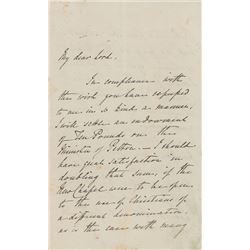 My dear Lord,
In compliance with
the wish you have expressed
to me in so kind a manner,
I will settle an endowment
of Ten Pounds on the
Minister of Pelton. I should
have great satisfaction in
doubling that sum, if the
New Chapel were to be open
to the use of Christians of
a different denomination,
as is the case with many